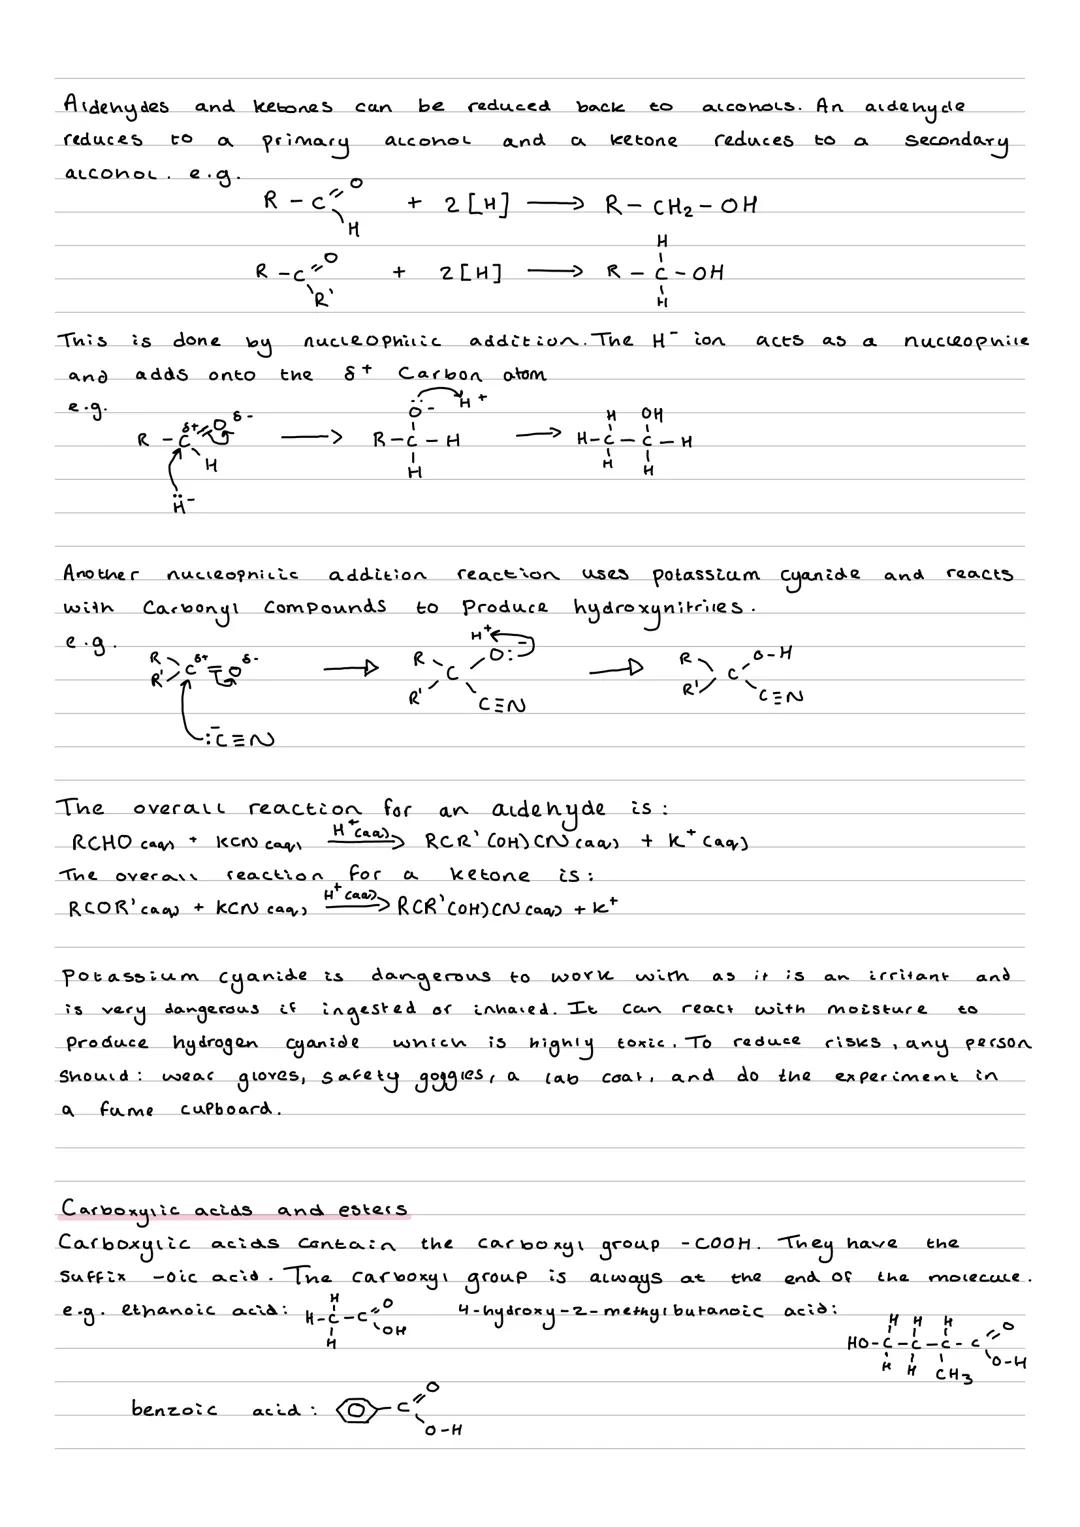 Aldehydes and ketones can be reduced back to alcohols. An aldehyde
reduces to a primary alcohol and a ketone reduces to a secondary
alcohol. e.g.
R - C =O H + 2[H] → R - CH₂ - OH
R - C =O R' + 2[H] → R - C - OH
H
H
This is done by nucleophilic addition. The H⁻ ion acts as a nucleophile
and adds onto the δ+ Carbon atom
e.g.
R - C δ+ = O δ- H → R - C - H → H - C - C - H
:H⁻
:O:⁻ H⁺
H
H OH
H H
Another nucleophilic addition reaction uses potassium cyanide and reacts
with Carbonyl compounds to produce hydroxynitriles.
e.g.
R R' C δ+ = O δ- → R R' C O:⁻ C≡N H⁺ → R R' C O-H C≡N
⁻:C≡N
The overall reaction for an aldehyde is:
RCHO (aq) + KCN (aq) H⁺(aq)→ RCR'(OH)CN (aq) + K⁺ (aq)
The overall reaction for a ketone is:
RCOR' (aq) + KCN (aq) H⁺(aq)→ RCR'(OH)CN (aq) + K⁺
Potassium cyanide is dangerous to work with as it is an irritant and
is very dangerous if ingested or inhaled. It can react with moisture to
produce hydrogen cyanide which is highly toxic. To reduce risks, any person
should: wear gloves, safety goggles, a lab coat, and do the experiment in
a fume cupboard.
Carboxylic acids and esters
Carboxylic acids contain the carboxyl group -COOH. They have the
suffix -oic acid. The carboxyl group is always at the end of the molecule.
e.g. ethanoic acid: H-C-C =O OH 4-hydroxy-2-methylbutanoic acid:
H
H
H H H
HO-C-C-C-C =O O-H
H H CH₃
benzoic acid: -C =O O-H